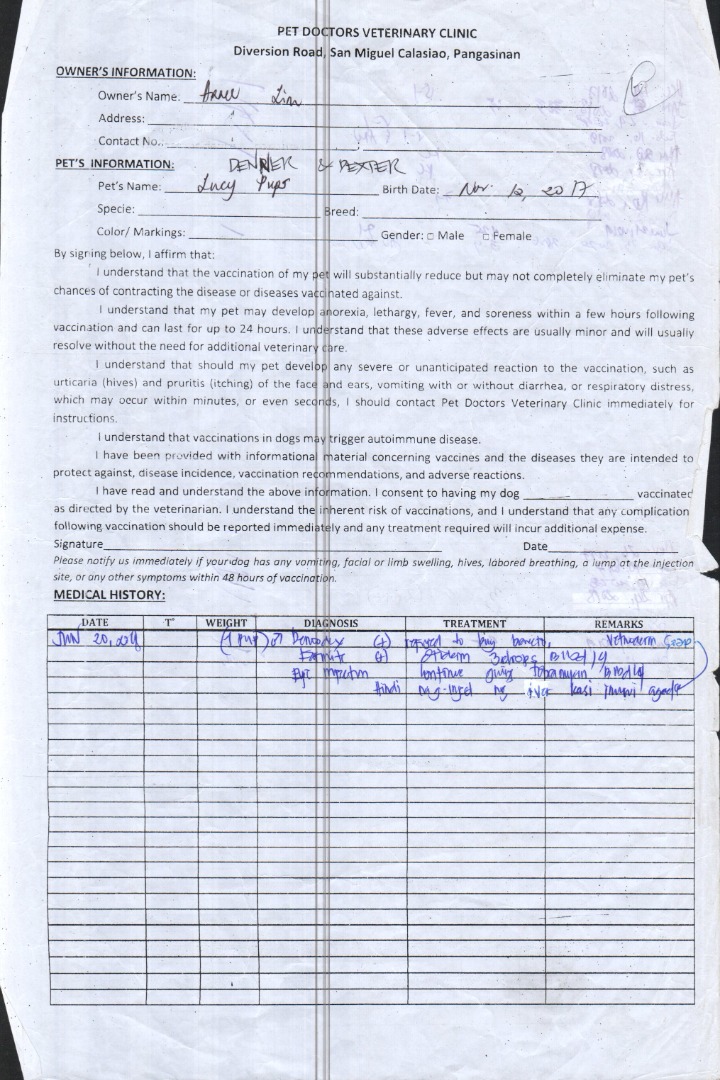 PET DOCTORS VETERINARY CLINIC
Diversion Road, San Miguel Calasiao, Pangasinan
OWNER'S INFORMATION:
Owner's Name: Lim
Address:
Contact No..
PET'S INFORMATION: DENVER & DEXTER
Pet's Name: Lucy Pups Birth Date: Nov. 12, 2017
Specie: Breed:
Color/ Markings: Gender: □ Male □ Female
By signing below, I affirm that:
I understand that the vaccination of my pet will substantially reduce but may not completely eliminate my pet's
chances of contracting the disease or diseases vaccinated against.
I understand that my pet may develop anorexia, lethargy, fever, and soreness within a few hours following
vaccination and can last for up to 24 hours. I understand that these adverse effects are usually minor and will usually
resolve without the need for additional veterinary care.
I understand that should my pet develop any severe or unanticipated reaction to the vaccination, such as
urticaria (hives) and pruritis (itching) of the face and ears, vomiting with or without diarrhea, or respiratory distress,
which may occur within minutes, or even seconds, I should contact Pet Doctors Veterinary Clinic immediately for
instructions.
I understand that vaccinations in dogs may trigger autoimmune disease.
I have been provided with informational material concerning vaccines and the diseases they are intended to
protect against, disease incidence, vaccination recommendations, and adverse reactions.
I have read and understand the above information. I consent to having my dog vaccinated
as directed by the veterinarian. I understand the inherent risk of vaccinations, and I understand that any complication
following vaccination should be reported immediately and any treatment required will incur additional expense.
Signature Date
Please notify us immediately if your dog has any vomiting, facial or limb swelling, hives, labored breathing, a lump at the injection
site, or any other symptoms within 48 hours of vaccination.
MEDICAL HISTORY:
DATE T° WEIGHT DIAGNOSIS TREATMENT REMARKS
JUN 20, (1 pup) ♂ Demodex (+) to buy Vetnderm Soap
(+) Otiderm 3drops BID
continue giving tobramycin
hindi nag- ng kasi